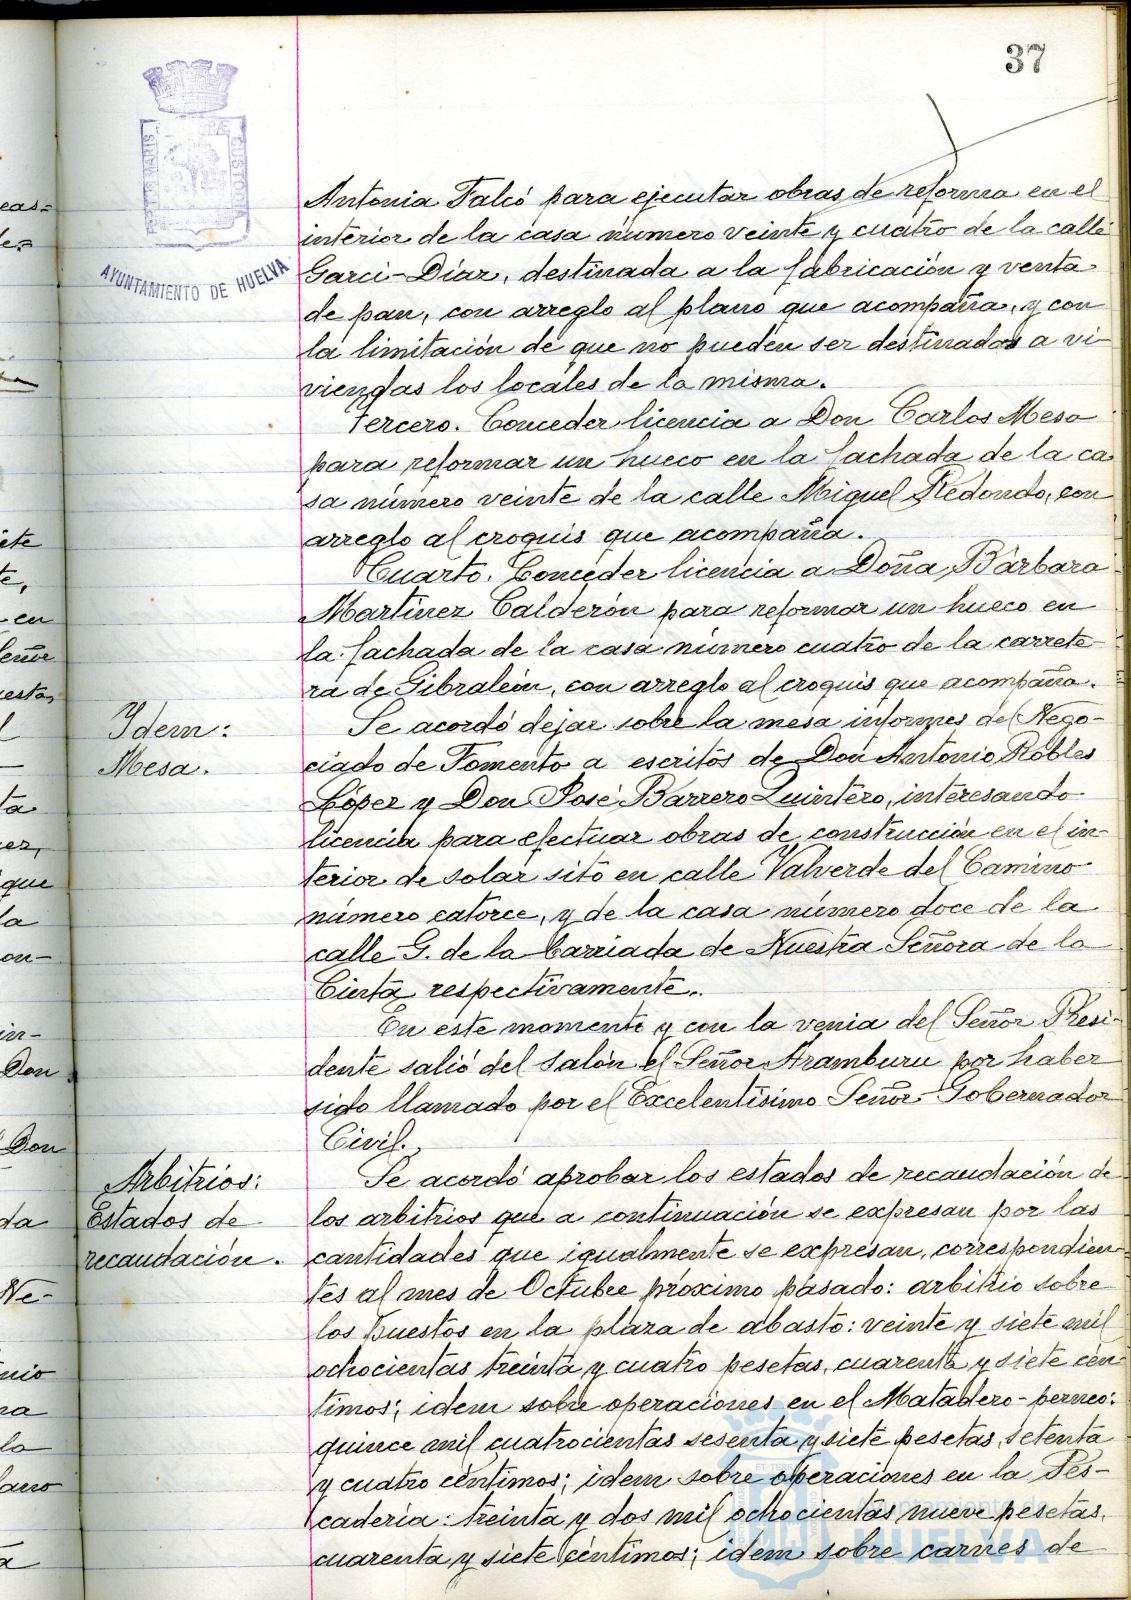 37
PORTUS MARIS ET TERRÆ CUSTODIA
AYUNTAMIENTO DE HUELVA
Antonia Falcó para ejecutar obras de reforma en el
interior de la casa número veinte y cuatro de la calle
Garci-Díaz, destinada a la fabricación y venta
de pan, con arreglo al plano que acompaña, y con
la limitación de que no pueden ser destinados a vi-
viendas los locales de la misma.
Tercero. Conceder licencia a Don Carlos Mesa
para reformar un hueco en la fachada de la ca
sa número veinte de la calle Miguel Redondo, con
arreglo al croquis que acompaña.
Cuarto. Conceder licencia a Doña Bárbara
Martínez Calderón para reformar un hueco en
la fachada de la casa número cuatro de la carrete-
ra de Gibraleón, con arreglo al croquis que acompaña.
Ydem:
Mesa.
Se acordó dejar sobre la mesa informes del Nego-
ciado de Fomento a escritos de Don Antonio Robles
López y Don José Barrero Quintero, interesando
licencia para efectuar obras de construcción en el in-
terior de solar sito en calle Valverde del Camino
número catorce, y de la casa número doce de la
calle G. de la barriada de Nuestra Señora de la
Cinta respectivamente.
En este momento y con la venia del Señor Presi-
dente salió del salón el Señor Aramburu por haber
sido llamado por el Excelentísimo Señor Gobernador
Civil.
Arbitrios:
Estados de
recaudación.
Se acordó aprobar los estados de recaudación de
los arbitrios que a continuación se expresan por las
cantidades que igualmente se expresan, correspondien-
tes al mes de Octubre próximo pasado: arbitrio sobre
los puestos en la plaza de abasto: veinte y siete mil
ochocientas treinta y cuatro pesetas, cuarenta y siete cén-
timos; idem sobre operaciones en el Matadero-perneo:
quince mil cuatrocientas sesenta y siete pesetas, setenta
y cuatro céntimos; idem sobre operaciones en la Pes-
cadería: treinta y dos mil ochocientas nueve pesetas,
cuarenta y siete céntimos; idem sobre carnes de
Ayuntamiento de
HUELVA